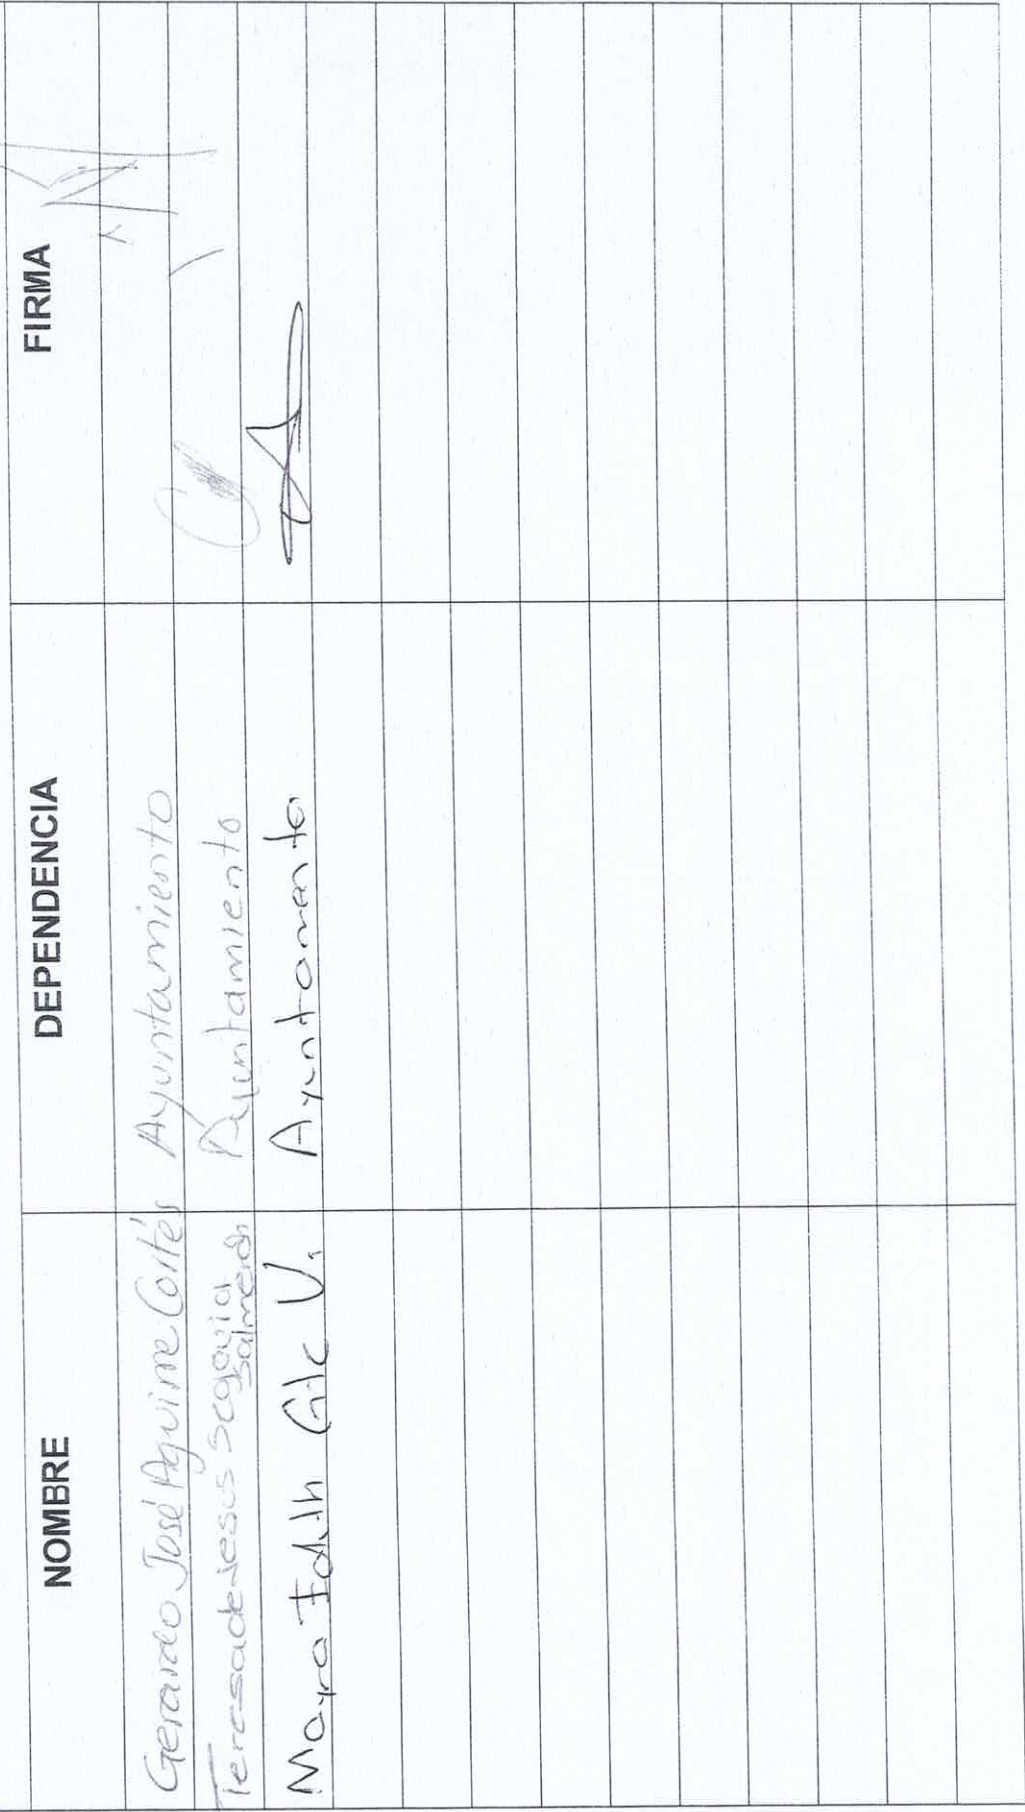 NOMBRE DEPENDENCIA FIRMA
Gerardo José Aguirre Cortés Ayuntamiento
Teresa de Jesus Segovia Ayuntamiento
Salmerón
Mayra Edith V. Ayuntamento